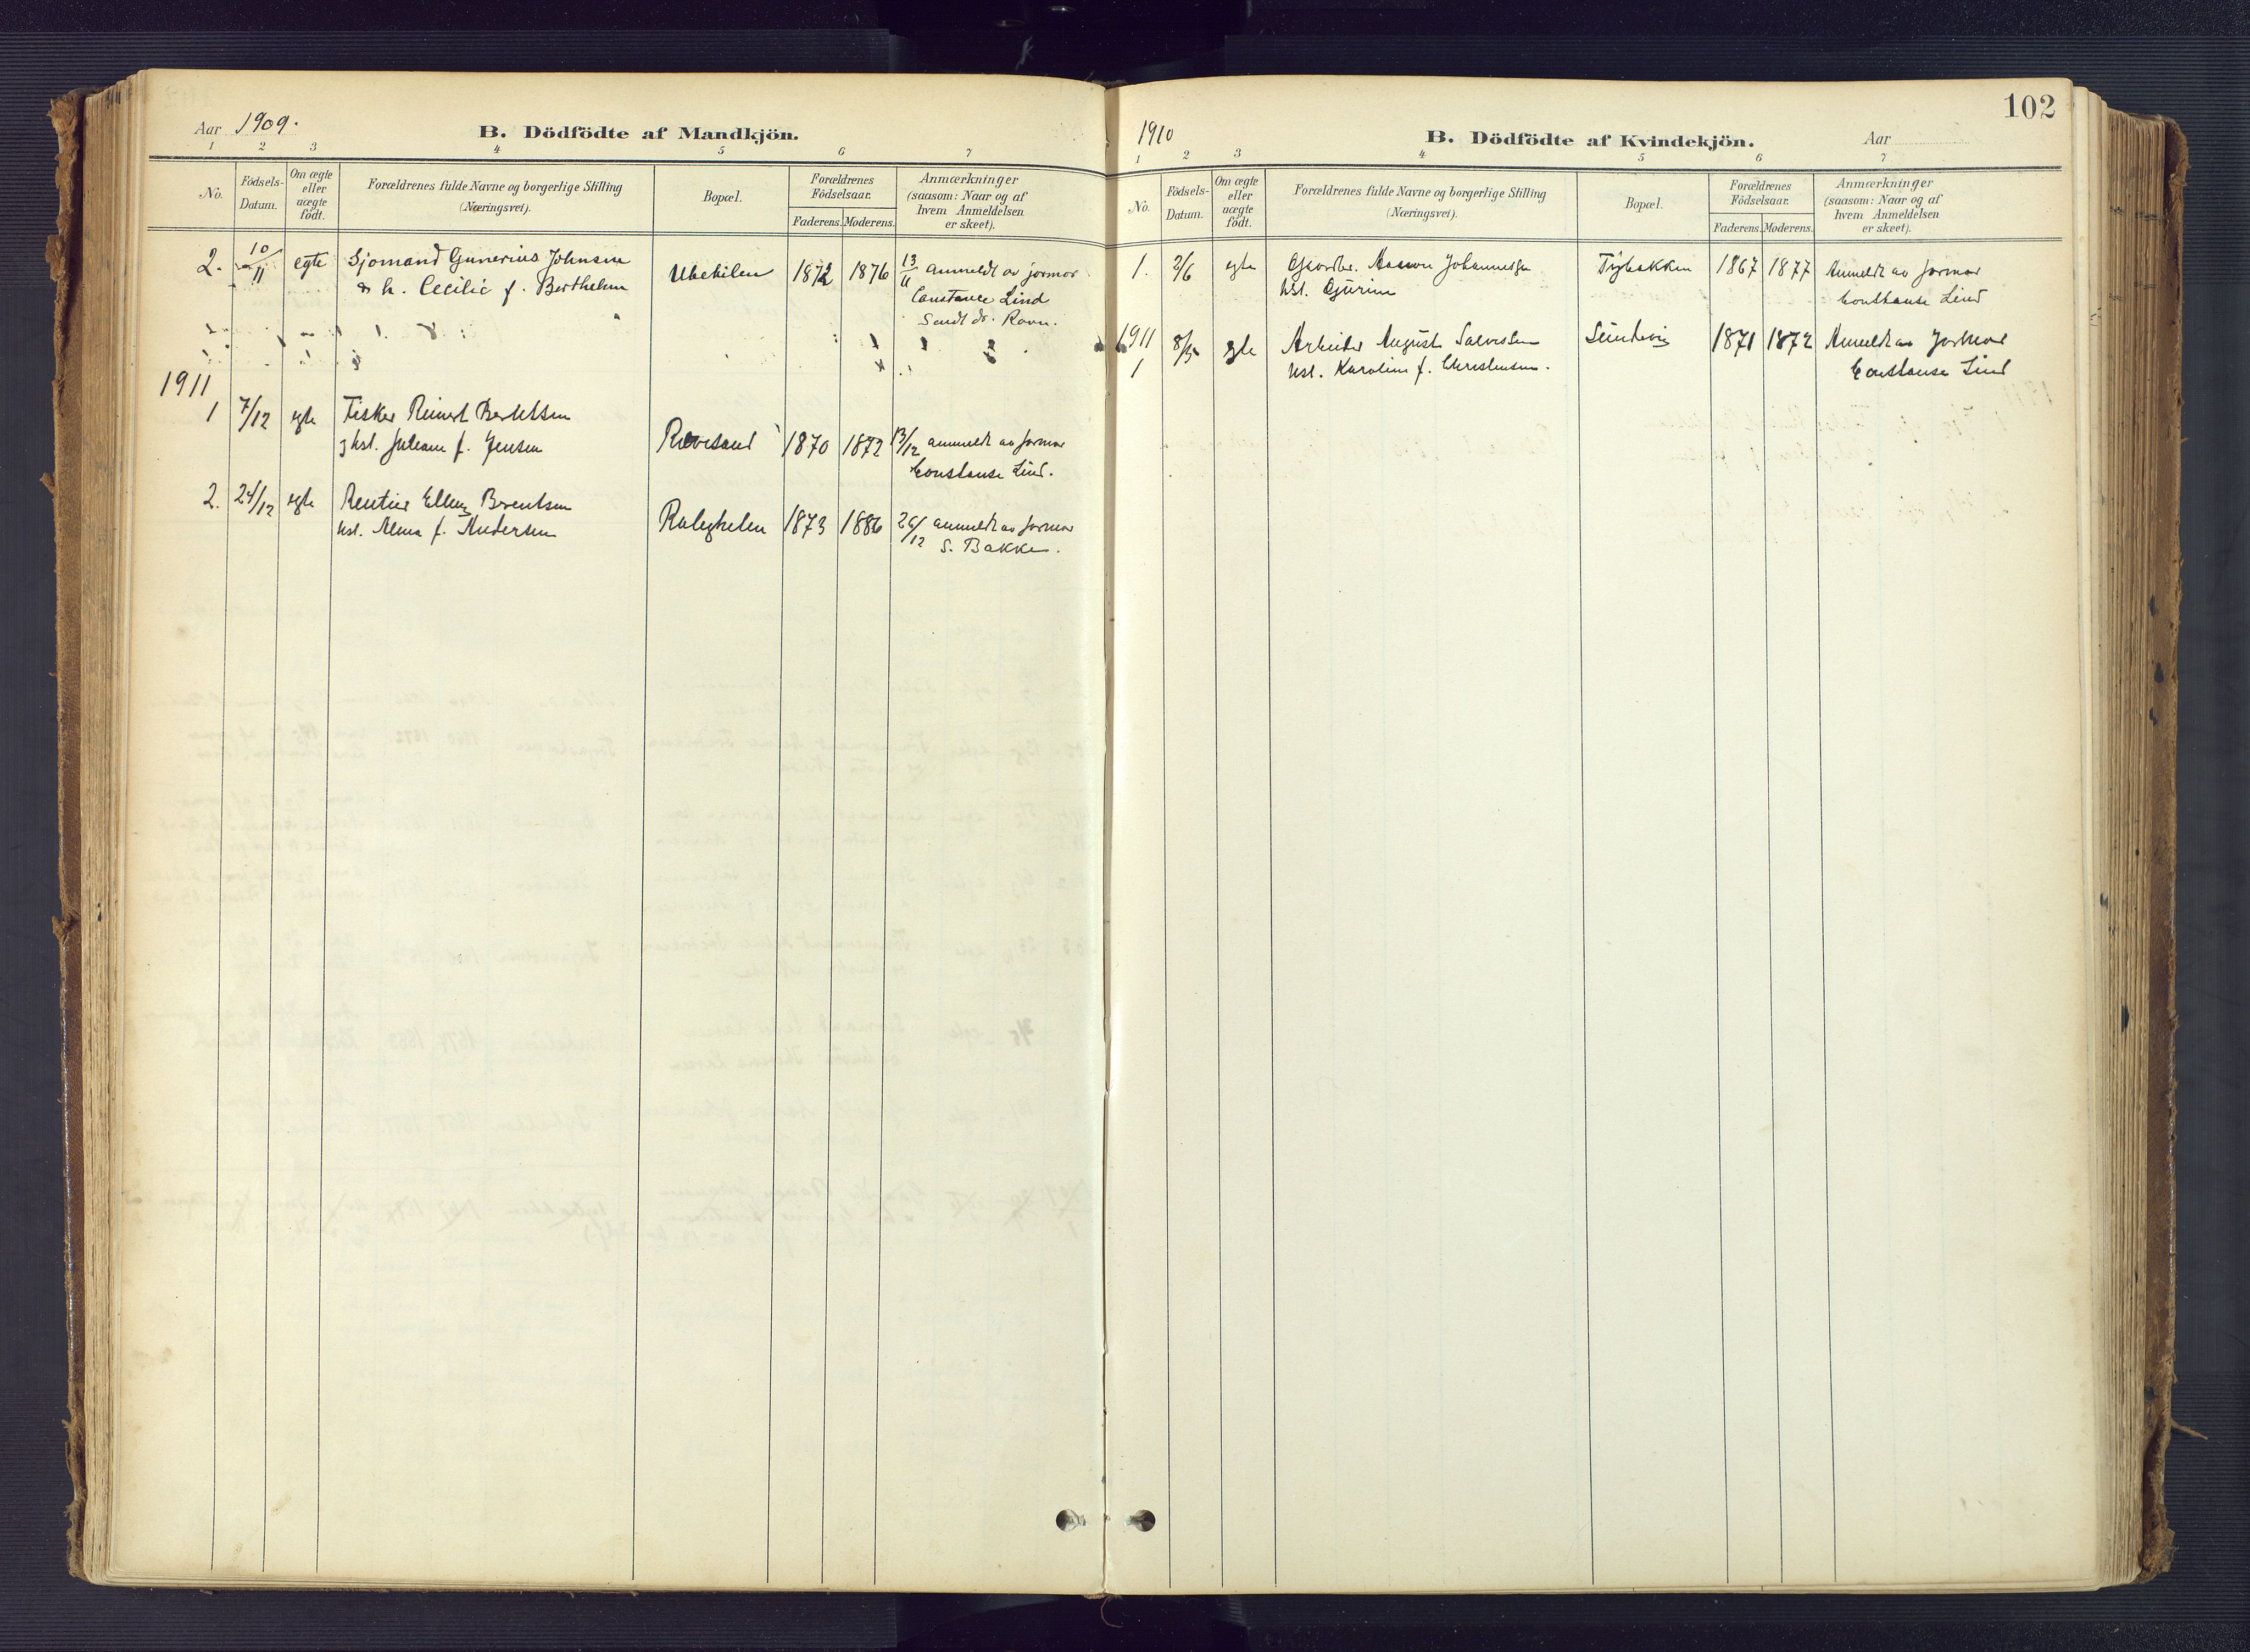 Aar 1909.
B. Dödfödte af Mandkjön.
1 2 3 4 5 6 7
No.
Födsels-Datum.
Om ægte eller uægte födt.
Forældrenes fulde Navne og borgerlige Stilling (Næringsvei).
Bopæl.
Forældrenes Födselsaar.
Faderens. Moderens.
Anmærkninger (saasom: Naar og af hvem Anmeldelsen er skeet).
2. 10/11 egte Sjømand Gunerius Johnsen Ubekilen 1872 1876 13/11 anmeldt av jormor
& h. Cecilie f. Berthelsen Constance Lind
Sendt dr. Ravn.
1911
1 7/12 egte Fisker Reinert Bertelsen
g hst. Juliane f. Jensen Revesand 1870 1872 13/12 anmeldt av jormor
Constanse Lind.
2. 24/12 egte Rentier Brentsen
hst. Alma f. Andersen 1873 1886 26/12 anmeldt av jormor
S. Bakke.
102
1910
B. Dödfödte af Kvindekjön.
Aar
1 2 3 4 5 6 7
No.
Födsels-Datum.
Om ægte eller uægte födt.
Forældrenes fulde Navne og borgerlige Stilling (Næringsvei).
Bopæl.
Forældrenes Födselsaar.
Faderens. Moderens.
Anmærkninger (saasom: Naar og af hvem Anmeldelsen er skeet).
1. 2/6 egte Gaardbr. Aanon Johannesen Tybakken 1867 1877 Anmeldt av jormor
hst. Gurine Constanse Lind
1911 8/5 egte Arbeider August Salvesen 1871 1872 Anmeldt av Jormor
1 hst. Karoline f. Christensen. Constanse Lind